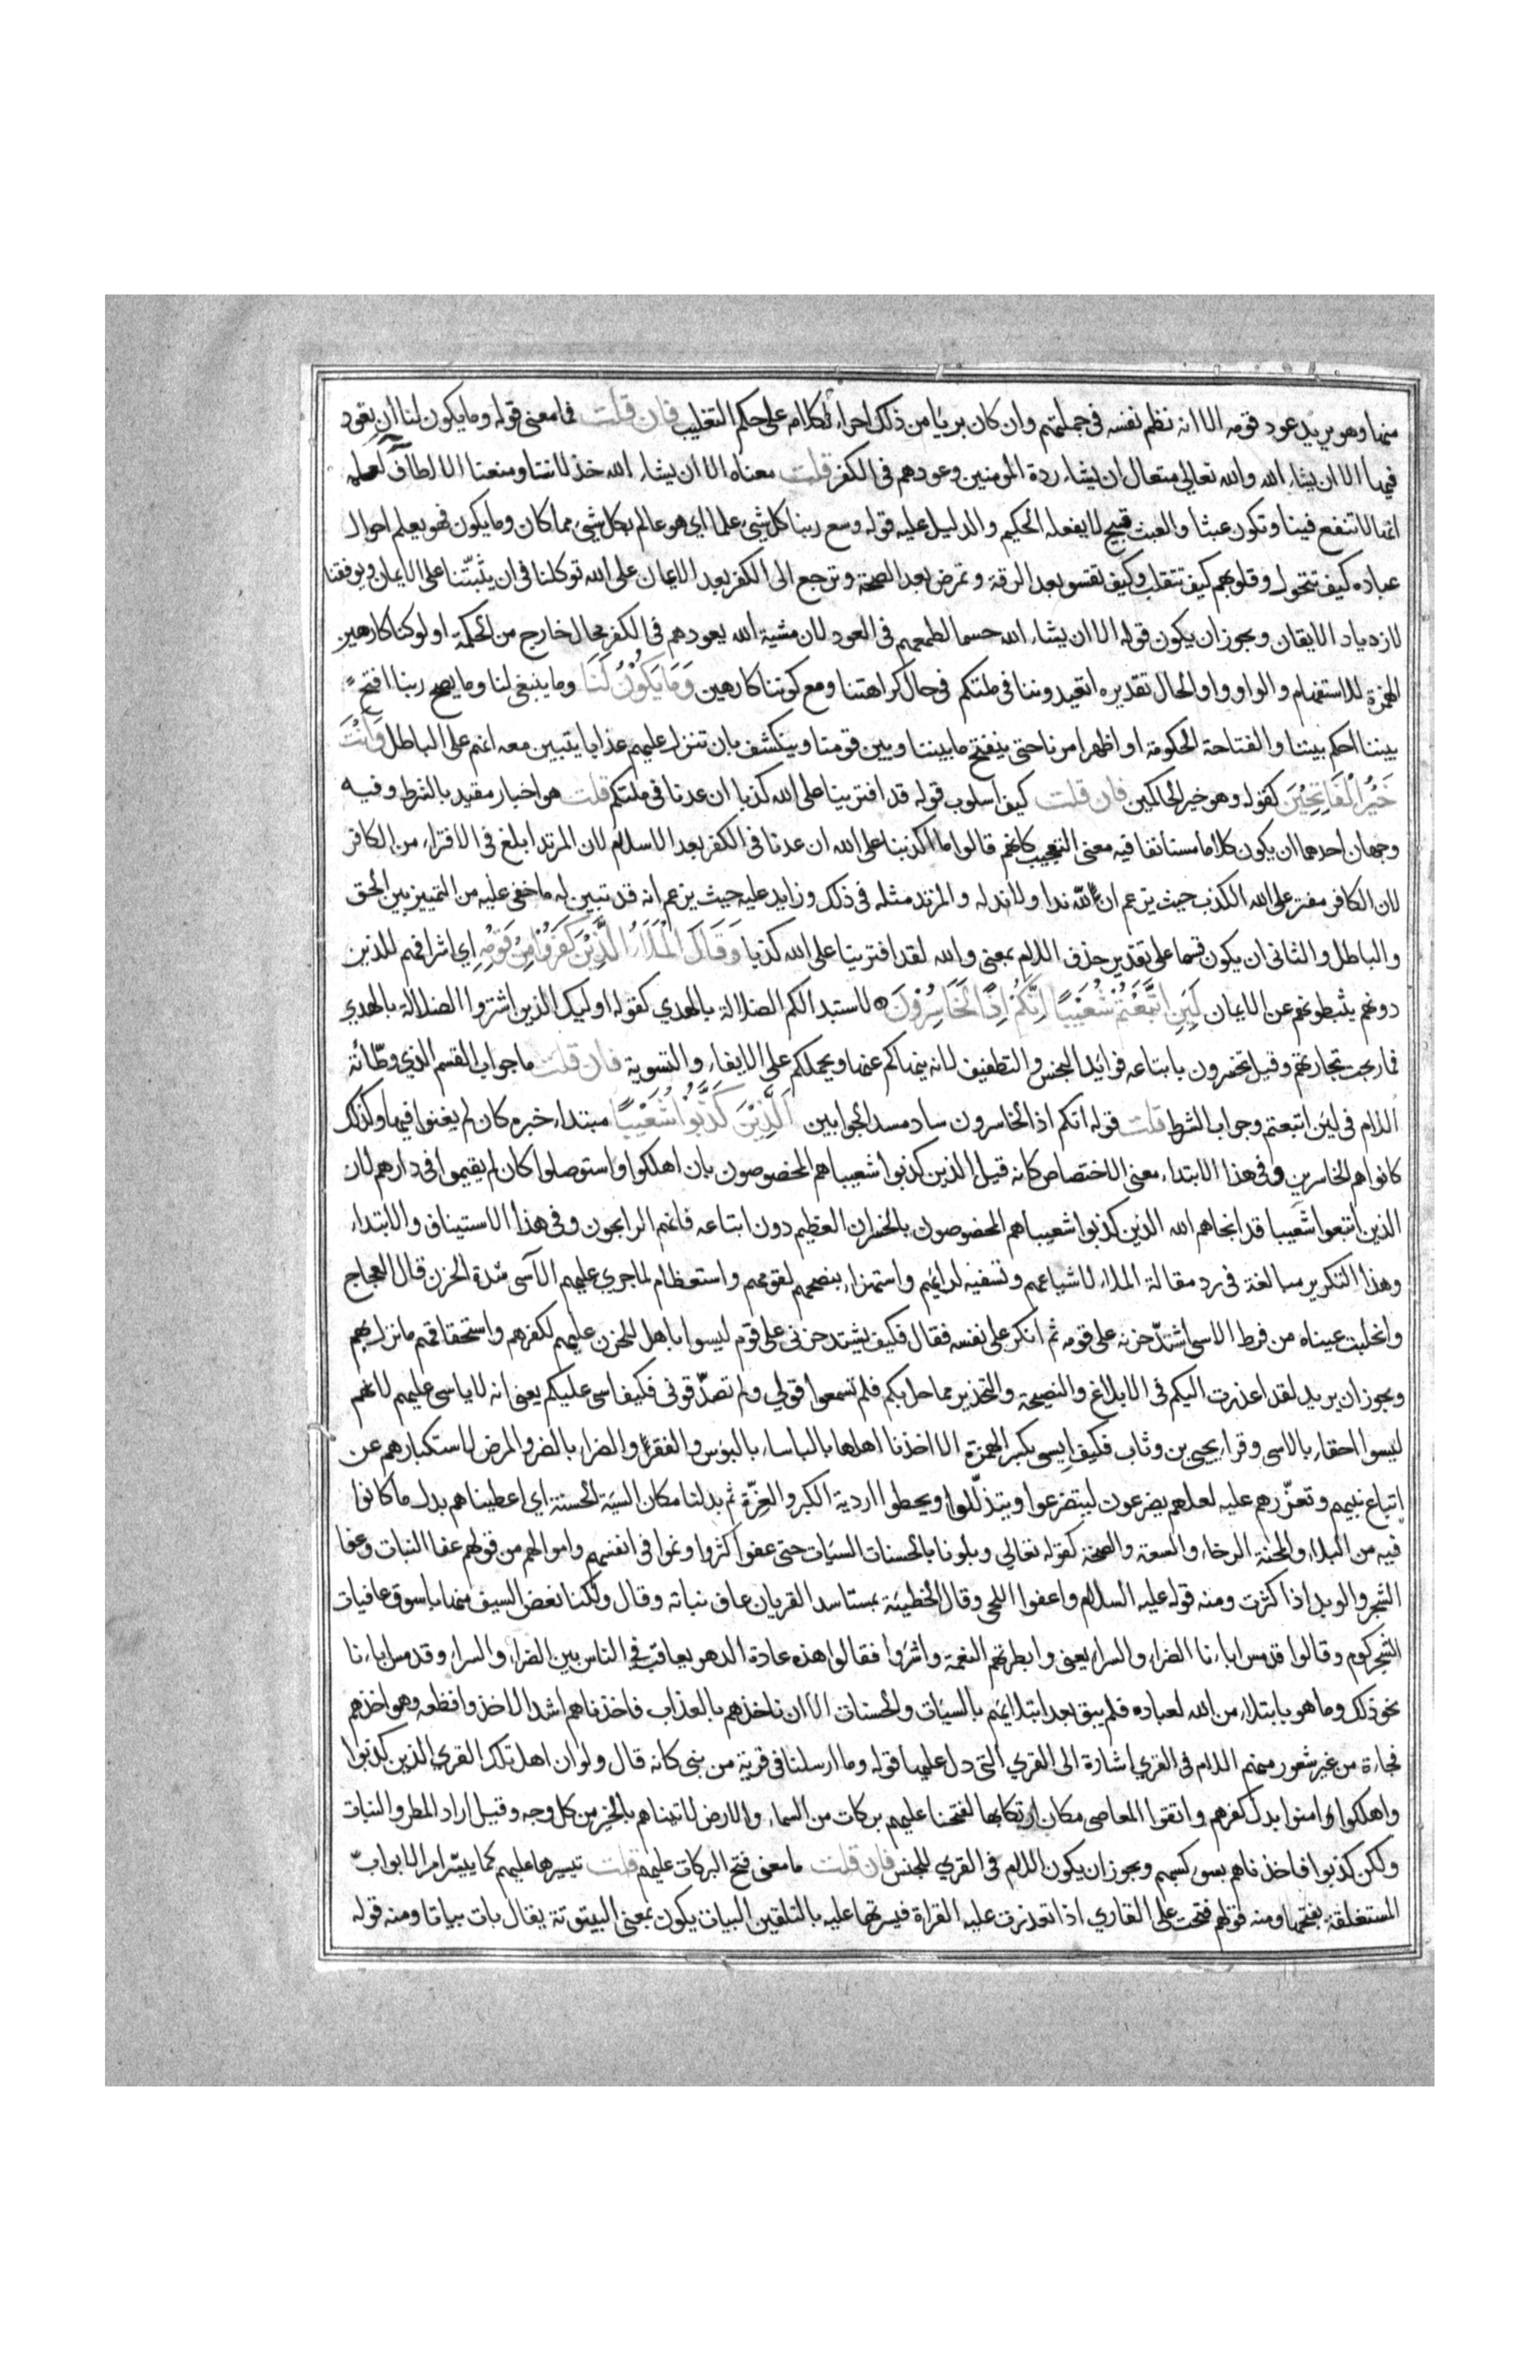 منها وهو يريد عود قومه الا انه نظم نفسه في جملتهم وان كان بريا من ذلك اجراء لكلامه على حكم التغليب فان قلت فما معنى قوله وما يكون لنا ان نعود
فيها الا ان يشاء الله والله تعالى متعال ان يشاء ردة المومنين وعودهم في الكفر قلت معناه الا ان يشاء الله خذلاننا ومنعنا الالطاف لعلمه
انها لا تنفع فينا وتكون عبثا والعبث قبيح لا يفعله الحكيم والدليل عليه قوله وسع ربنا كل شيء علما اي هو عالم بكل شيء مما كان وما يكون فهو يعلم احوال
عباده كيف تتحول وقلوبهم كيف تتقلب وكيف تقسو بعد الرقة وتمرض بعد الصحة وترجع الى الكفر بعد الايمان على الله توكلنا في ان يثبّتنا على الايمان ويوفقنا
لازدياد الايقان ويجوز ان يكون قوله الا ان يشاء الله حسما لطمعهم في العود لان مشية الله بعودهم في الكفر محال خارج من الحكمة اولو كنا كارهين
الهمزة للاستفهام والواو واو الحال تقديره اتعيدوننا في ملتكم في حال كراهتنا ومع كوننا كارهين وَمَا يَكُوْنُ لَنَا وما ينبغي لنا وما يصح ربنا افتح
بيننا احكم بيننا والفتاحة الحكومة او اظهر امرنا حتى ينفتح ما بيننا وبين قومنا وينكشف بان تنزل عليهم عذابا يتبين معه انهم على الباطل وَاَنْتَ
خَيْرُ الْفَاتِحِيْنَ كقوله وهو خير الحاكمين فان قلت كيف اسلوب قوله قد افترينا على الله كذبا ان عدنا في ملتكم قلت هو اخبار مقيد بالشرط وفيه
وجهان احدهما ان يكون كلاما مستانفا فيه معنى التعجب كانهم قالوا ما اكذبنا على الله ان عدنا في الكفر بعد الاسلام لان المرتد ابلغ في الافتراء من الكافر
لان الكافر مفتر على الله الكذب حيث يزعم ان لله ندا ولا ند له والمرتد مثله في ذلك وزايد عليه حيث يزعم انه قد تبين له ما خفي عليه من التمييز بين الحق
والباطل والثاني ان يكون قسما على تقدير حذف اللام بمعنى والله لقد افترينا على الله كذبا وَقَالَ الْمَلَاُ الَّذِيْنَ كَفَرُوْا مِنْ قَوْمِهِ اي اشرافهم للذين
دونهم يثبطونهم عن الايمان لَئِنِ اتَّبَعْتُمْ شُعَيْبًا اِنَّكُمْ اِذًا لَخَاسِرُوْنَ لاستبدالكم الضلالة بالهدي كقوله اوليك الذين اشتروا الضلالة بالهدي
فما ربحت تجارتهم وقيل تخسرون باتباعه فوايد البخس والتطفيف لانه ينهاكم عنها ويحملكم على الايفاء والتسوية فان قلت ما جواب القسم الذي وطّائة
اللام في لئن اتبعتم وجواب الشرط قلت قوله انكم اذا لخاسرون ساد مسد الجوابين اَلَّذِيْنَ كَذَّبُوْا شُعَيْبًا مبتداء خبره كان لم يغنوا فيها وكذلك
كانوا هم الخاسرين وفي هذا الابتداء معنى الاختصاص كانه قيل الذين كذبوا شعيبا هم المخصوصون بان اهلكوا واستوصلوا كان لم يقيموا في دارهم لان
الذين اتبعوا شعيبا قد انجاهم الله الذين كذبوا شعيبا هم المخصوصون بالخسران العظيم دون اتباعه فانهم الرابحون وفي هذا الاستيناف والابتداء
وهذا التكرير مبالغة في رد مقالة الملاء لاشياعهم وتسفيه لرايهم واستهزاء بنصحهم لقومهم واستعظام لما جري عليهم الاسى شدة الحزن قال العجاج
وانحلبت عيناه من فرط الاسى اشتدّ حزنه على قومه ثم انكر على نفسه فقال فكيف يشتد حزني على قوم ليسوا باهل للحزن عليهم لكفرهم واستحقاقهم ما نزل بهم
ويجوز ان يريد لقد اعذرت اليكم في الابلاغ والنصيحة والتحذير مما حل بكم فلم تسمعوا قولي ولم تصدّقوني فكيف اسى عليكم يعنى انه لا ياسى عليهم لانهم
ليسوا احقاء بالاسى وقراء يحيى بن وثاب فكيف ايسى بكسر الهمزة الا اخذنا اهلها بالباساء بالبؤس والفقر والضراء بالضر والمرض لاستكبارهم عن
اتباع نبيهم وتعزّزهم عليه لعلهم يضرعون ليتضرعوا ويتذلّلوا ويحطوا اردية الكبر والعزّة ثم بدلنا مكان السيّة الحسنة اي اعطيناهم بدل ما كانوا
فيه من البلاء والمحنة الرخاء والسعة والصحة كقوله تعالي وبلونا بالحسنات السيّات حتى عفوا كثروا ونموا في انفسهم واموالهم من قولهم عفا النبات وعفا
الشجر والوبل اذا كثرت ومنه قوله عليه السلام واعفوا اللحى وقال الحطيئة بمستاسد القريان عاف نباته وقال ولكنا نعض السيف منها باسوق عافيات
الشجر كوم وقالوا قد مس اباءنا الضراء والسراء يعنى وابطرتهم النعمة واشروا فقالوا هذه عادة الدهر يعاقب في الناس بين الضراء والسراء وقد مس اباءنا
نحو ذلك وما هو بابتلاء من الله لعباده فلم يبق بعد ابتلايهم بالسيّات والحسنات الا ان ناخذهم بالعذاب فاخذناهم اشد الاخذ وافظعه وهو اخذهم
فجاءة من غير شعور منهم اللام في القري اشارة الى القري التي دل عليها قوله وما ارسلنا في قرية من نبي كانه قال ولو ان اهل تلك القري الذين كذبوا
واهلكوا وامنوا بدل كفرهم واتقوا المعاصي مكان ارتكابها لفتحنا عليهم بركات من السماء والارض لاتيناهم بالخير من كل وجه وقيل اراد المطر والنبات
ولكن كذبوا فاخذناهم بسوء كسبهم ويجوز ان يكون اللام في القري للجنس فان قلت ما معنى فتح البركات عليهم قلت تيسيرها عليهم كما ييسّر امر الابواب
المستغلقة بفتحها ومنه قولهم فتحت على القاري اذا تعذرت عليه القراة فيسرتها عليه بالتلقين البيات يكون بمعنى البيتوتة يقال بات بياتا ومنه قوله